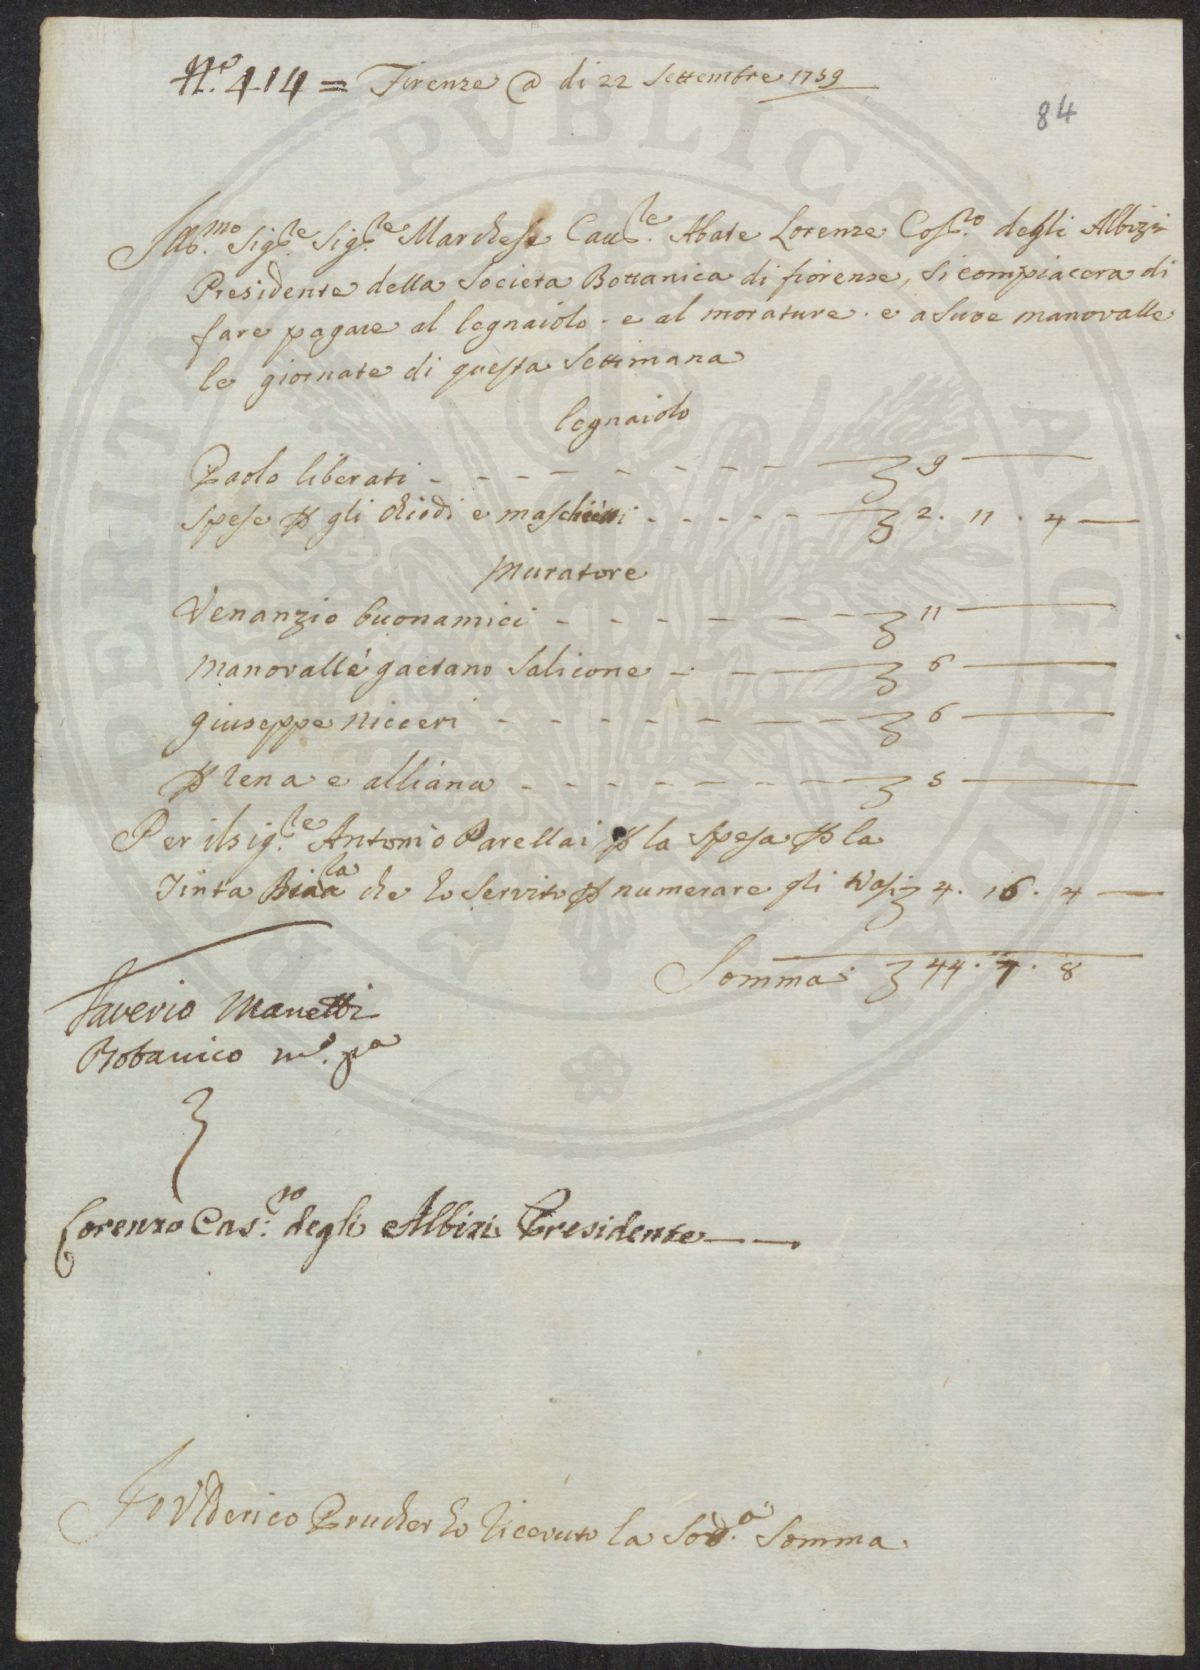 N.º 414 = Firenze @ di 22 Settembre 1759
84
Ill.mo Sig.re Sig.re Marchese Cau.re Abate Lorenzo Cos.no degli Albizi
Presidente della Societa Bottanica di fiorense, si compiacera di
fare pagare al legnaiolo e al morature e a suoe manovalle
le giornate di questa Settimana
legnaiolo
Paolo liberati 9
Spese p gli chiodi e maschietti 2. 11. 4
Muratore
Venanzio buonamici 11
Manovalle gaetano Salicone 6
giuseppe nicceri 6
p rena e 5
Per il sig.re Antonio Parellai p la Spesa p la
Tinta che ho Servito p numerare gli Vasi 4. 16. 4
Somma 44. 7. 8
Saverio Manetti
Botanico m.o p.a
Lorenzo Cas.no degli Albizi Presidente
Io Vlderico Prucher ho riceuuto la Sod.a Somma
PVBLICA